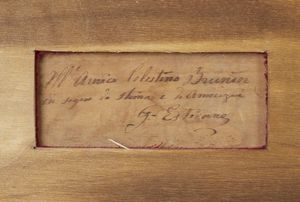 All'amico Celestino Brunier
in segno di stima e di amicizia
G. Estienne